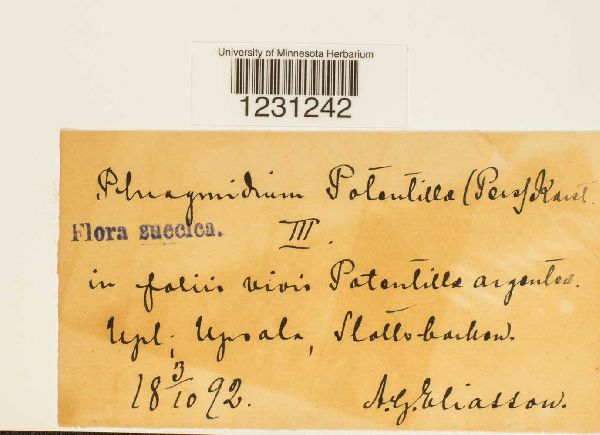 University of Minnesota Herbarium
1231242
Phragmidium Potentillæ (Pers) Karst.
Flora suecica.
III.
in foliis vivis Potentillæ argenteæ.
Upl; Upsala, Slottsbacken.
18 3/10 92.
A.G. Eliasson.